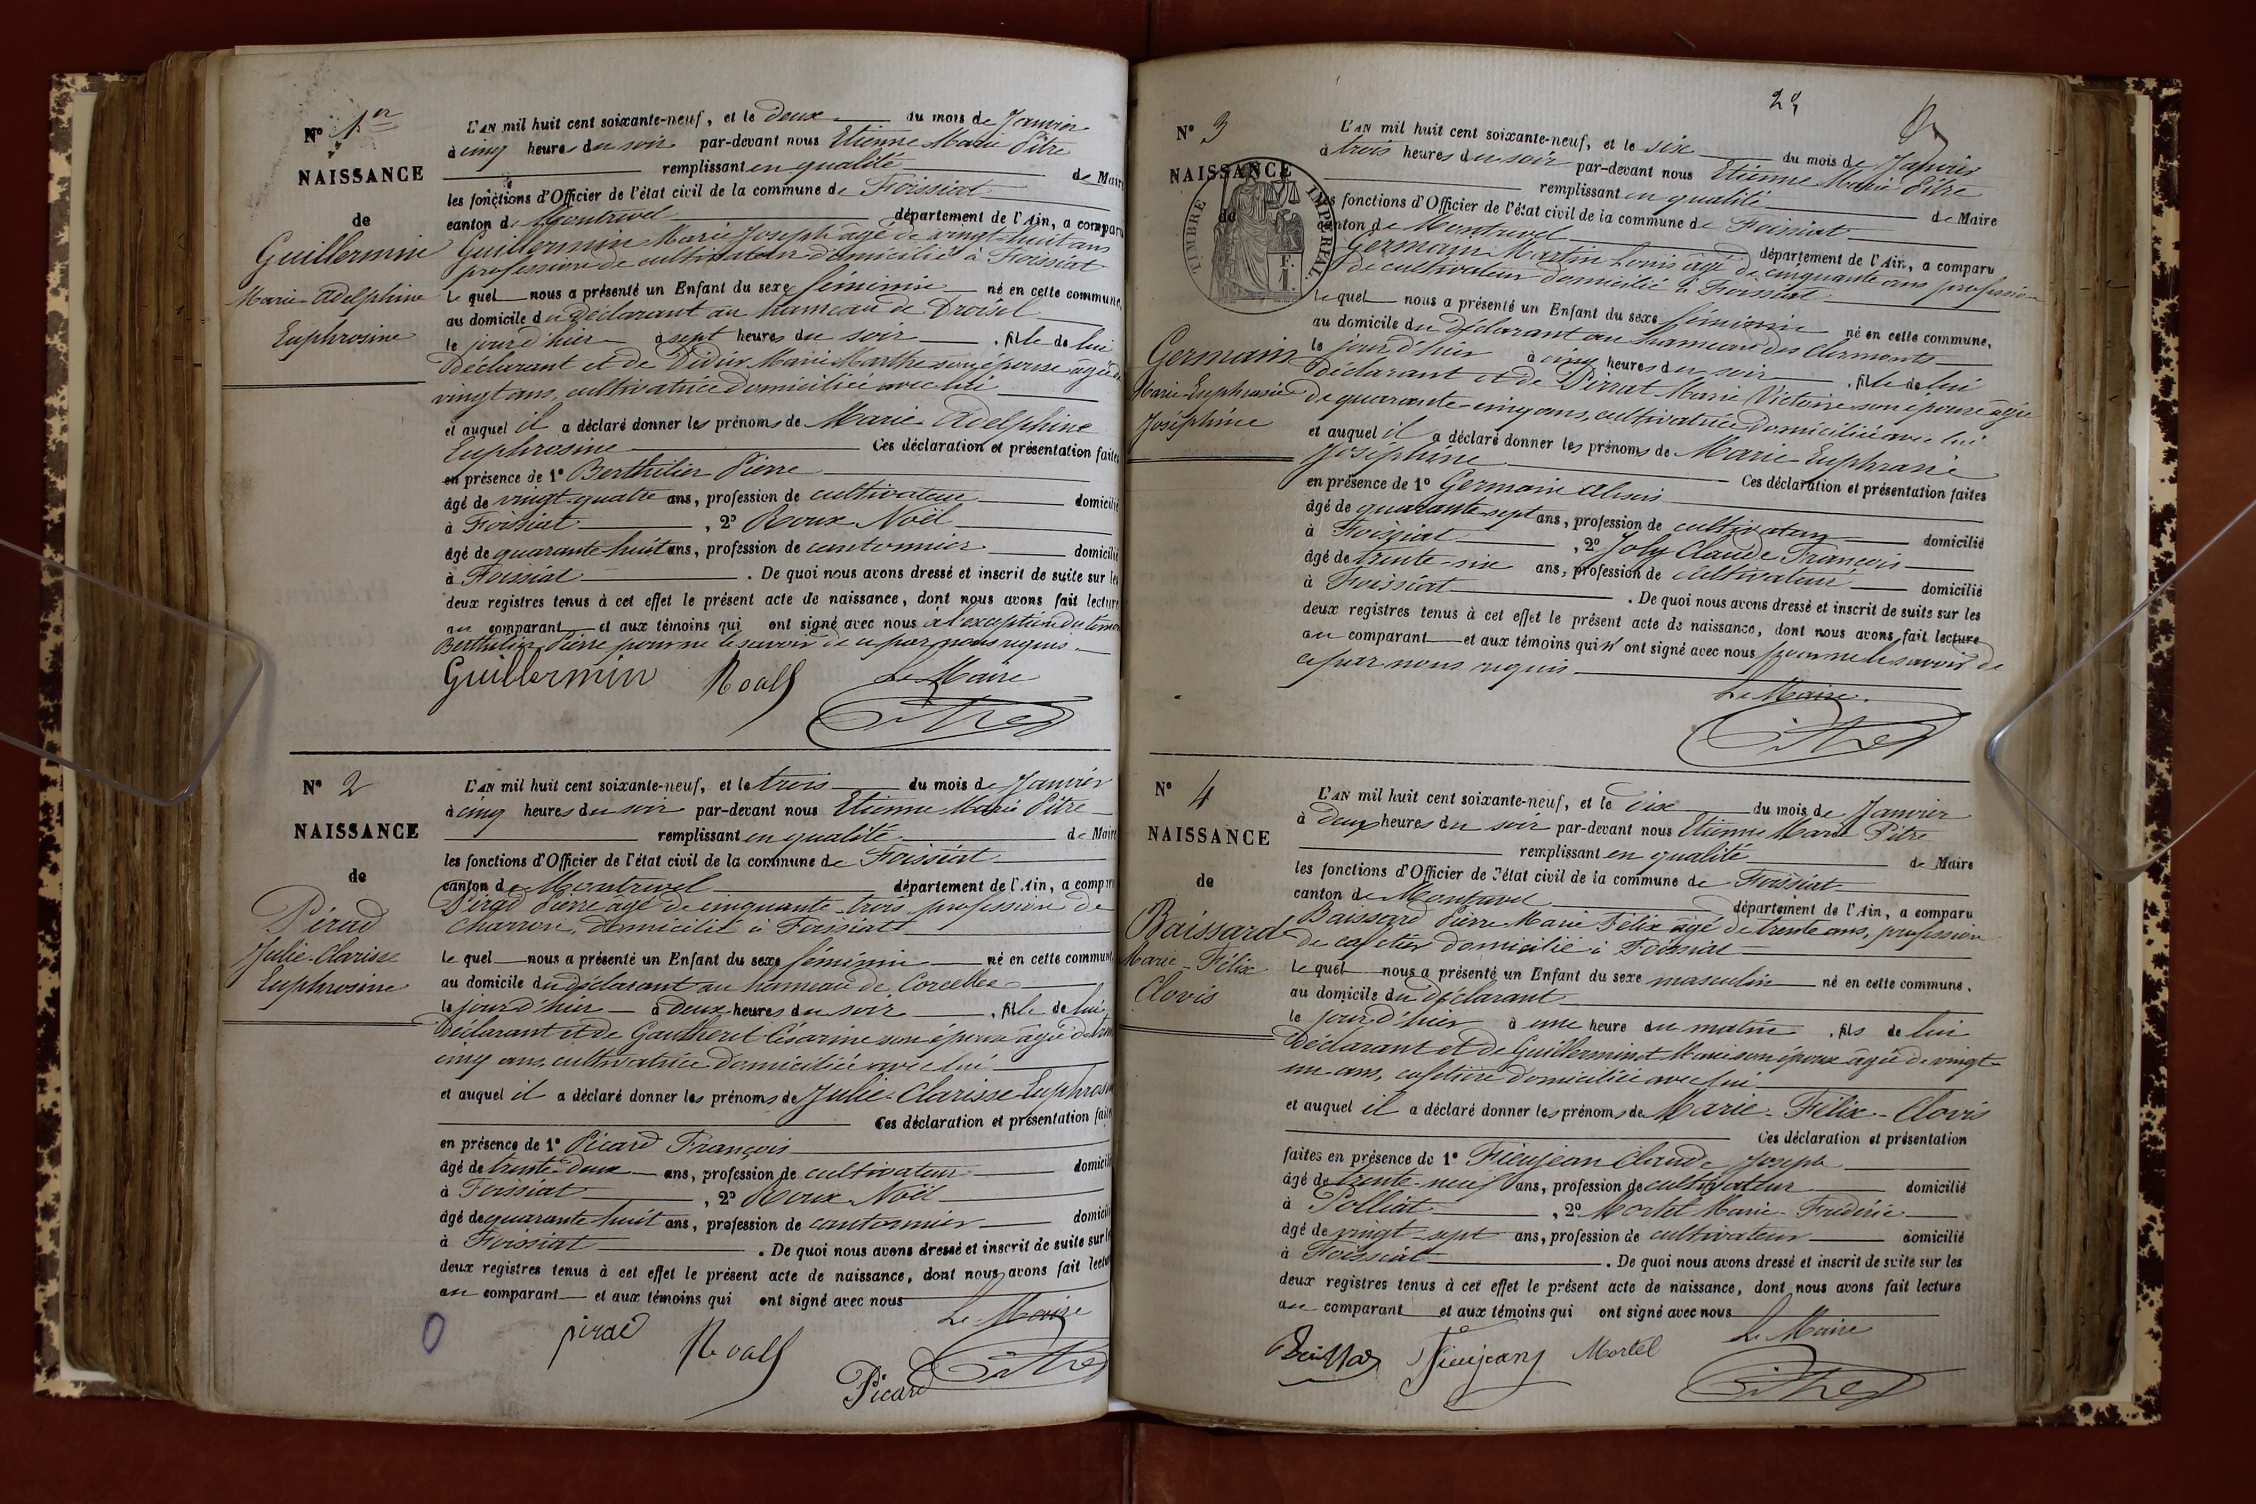 N° 1er
NAISSANCE
de
Guillermin
Marie-Adelphine
Euphrosine
L'AN mil huit cent soixante-neuf, et le deux du mois de Janvier
à cinq heures du soir par-devant nous Etienne Marie Pitre
remplissant en qualité de Maire
les fonctions d'Officier de l'état civil de la commune de Foissiat
canton de Montrevel département de l'Ain, a comparu
Guillermin Marie Joseph âgé de vingt-huit ans
profession de cultivateur domicilié à Foissiat
Le quel nous a présenté un Enfant du sexe féminin né en cette commune,
au domicile du Déclarant au hameau de
le jour d'hier à sept heures du soir , fille de lui
Déclarant et de Marie Marthe son épouse âgée de
vingt ans, cultivatrice domiciliée avec lui
et auquel il a déclaré donner les prénoms de Marie Adelphine
Euphrosine Ces déclaration et présentation faites
en présence de 1° Berthilier Pierre
âgé de vingt-quatre ans, profession de cultivateur domicilié
à Foissiat , 2° Roux Noël
âgé de quarante-huit ans, profession de cantonnier domicilié
à Foissiat . De quoi nous avons dressé et inscrit de suite sur les
deux registres tenus à cet effet le présent acte de naissance, dont nous avons fait lecture
au comparant et aux témoins qui ont signé avec nous à l'exception du témoin
Berthilier Pierre pour ne le savoir de ce par nous requis.
Guillermin Le Maire
Pitre
N° 2
NAISSANCE
de
Pérad
Julie-Clarisse
Euphrosine
L'AN mil huit cent soixante-neuf, et le trois du mois de Janvier
à cinq heures du soir par-devant nous Etienne Marie Pitre
remplissant en qualité de Maire
les fonctions d'Officier de l'état civil de la commune de Foissiat
canton de Montrevel département de l'Ain, a comparu
Pérad Pierre âgé de cinquante-trois profession de
charron, domicilié à Foissiat
Le quel nous a présenté un Enfant du sexe féminin né en cette commune,
au domicile du déclarant au hameau de Corcelles
le jour d'hier à deux heures du soir , fille de lui
Déclarant et de Gautheret Césarine son épouse âgée de
cinq ans, cultivatrice domiciliée avec lui
et auquel il a déclaré donner les prénoms de Julie-Clarisse-Euphrosine
Ces déclaration et présentation faites
en présence de 1° Picard François
âgé de trente-deux ans, profession de cultivateur domicilié
à Foissiat , 2° Roux Noël
âgé de quarante-huit ans, profession de cantonnier domicilié
à Foissiat . De quoi nous avons dressé et inscrit de suite sur les
deux registres tenus à cet effet le présent acte de naissance, dont nous avons fait lecture
au comparant et aux témoins qui ont signé avec nous
Le Maire
perad
Picard Pitre
N° 3
NAISSANCE
de
TIMBRE IMPERIAL
Germain
Marie-Euphrasie
Joséphine
L'AN mil huit cent soixante-neuf, et le six du mois de Janvier
à trois heures du soir par-devant nous Etienne Marie Pitre
remplissant en qualité de Maire
les fonctions d'Officier de l'état civil de la commune de Foissiat
canton de Montrevel département de l'Ain, a comparu
Germain Martin Louis âgé de cinquante ans profession
de cultivateur domicilié à Foissiat
Le quel nous a présenté un Enfant du sexe féminin né en cette commune,
au domicile du Déclarant au hameau des Clermonts
le jour d'hier à cinq heures du soir , fille de lui
Déclarant et de Marie Victoire son épouse âgée
de quarante-cinq ans, cultivatrice domiciliée avec lui
et auquel il a déclaré donner les prénoms de Marie-Euphrasie
Joséphine Ces déclaration et présentation faites
en présence de 1° Germain Alexis
âgé de quarante-sept ans, profession de cultivateur domicilié
à Foissiat , 2° Joly Claude François
âgé de trente-six ans, profession de cultivateur domicilié
à Foissiat . De quoi nous avons dressé et inscrit de suite sur les
deux registres tenus à cet effet le présent acte de naissance, dont nous avons fait lecture
au comparant et aux témoins qui n' ont signé avec nous pour ne le savoir de
ce par nous requis.
Le Maire.
Pitre
N° 4
NAISSANCE
de
Baissard
Marie-Félix
Clovis
L'AN mil huit cent soixante-neuf, et le dix du mois de Janvier
à deux heures du soir par-devant nous Etienne Marie Pitre
remplissant en qualité de Maire
les fonctions d'Officier de l'état civil de la commune de Foissiat
canton de Montrevel département de l'Ain, a comparu
Baissard Pierre Marie Félix âgé de trente ans, profession
de cafetier domicilié à Foissiat
Le quel nous a présenté un Enfant du sexe masculin né en cette commune,
au domicile du déclarant
le jour d'hier à une heure du matin , fils de lui
Déclarant et de Guillerminet Marie son épouse âgée de vingt-
un ans, cafetière domiciliée avec lui
et auquel il a déclaré donner les prénoms de Marie-Félix-Clovis
Ces déclaration et présentation
faites en présence de 1° Fieujean Claude Joseph
âgé de trente-neuf ans, profession de cultivateur domicilié
à Polliat , 2° Mortel Marie-Frédéric
âgé de vingt-sept ans, profession de cultivateur domicilié
à Foissiat . De quoi nous avons dressé et inscrit de suite sur les
deux registres tenus à cet effet le présent acte de naissance, dont nous avons fait lecture
au comparant et aux témoins qui ont signé avec nous
Le Maire
Fieujean Mortel Pitre